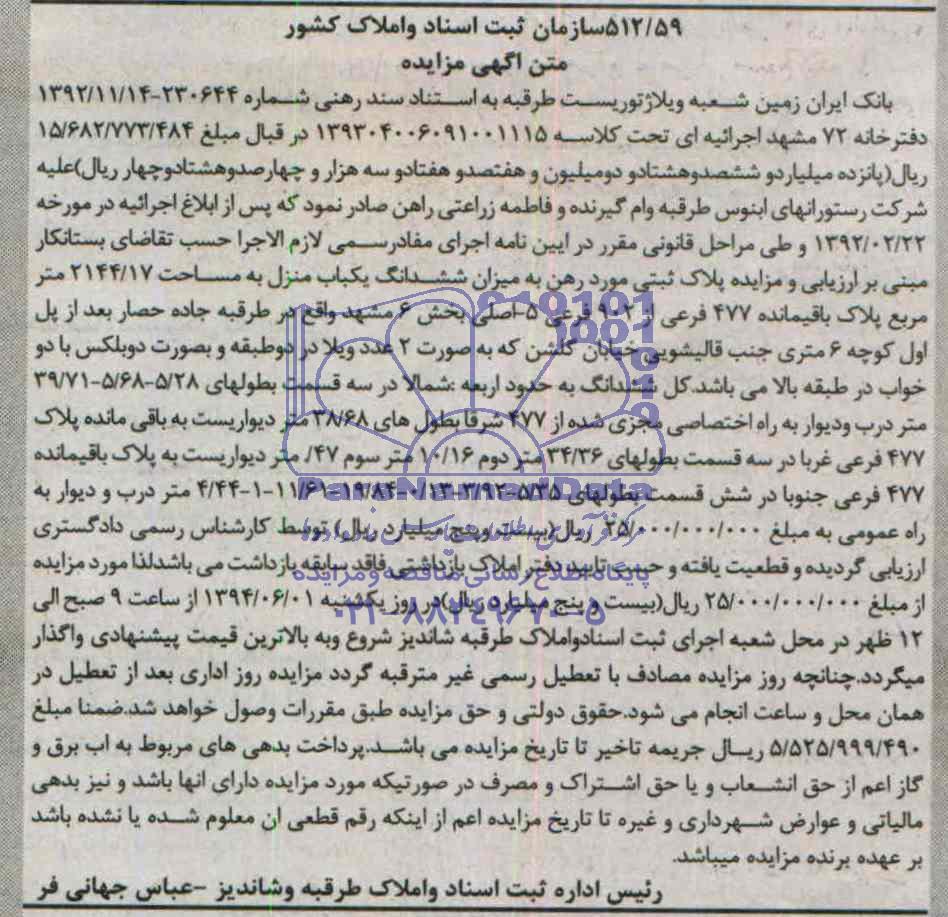 ۵۱۲/۵۹سازمان ثبت اسناد واملاک کشور
متن اگهی مزایده
بانک ایران زمین شعبه ویلاژتوریست طرقبه به استناد سند رهنی شماره ۲۳۰۶۴۴-۱۳۹۲/۱۱/۱۴
دفترخانه ۷۲ مشهد اجرائیه ای تحت کلاسه ۱۳۹۳۰۴۰۰۶۰۹۱۰۰۱۱۱۵ در قبال مبلغ ۱۵/۶۸۲/۷۷۳/۴۸۴
ریال(پانزده میلیاردو ششصدوهشتادو دومیلیون و هفتصدو هفتادو سه هزار و چهارصدوهشتادوچهار ریال)علیه
شرکت رستورانهای ابنوس طرقبه وام گیرنده و فاطمه زراعتی راهن صادر نمود که پس از ابلاغ اجرائیه در مورخه
۱۳۹۲/۰۲/۲۲ و طی مراحل قانونی مقرر در ایین نامه اجرای مفادرسمی لازم الاجرا حسب تقاضای بستانکار
مبنی بر ارزیابی و مزایده پلاک ثبتی مورد رهن به میزان ششدانگ یکباب منزل به مساحت ۲۱۴۴/۱۷ متر
مربع پلاک باقیمانده ۴۷۷ فرعی از ۹۰۲ فرعی ۵-اصلی بخش ۶ مشهد واقع در طرقبه جاده حصار بعد از پل
اول کوچه ۶ متری جنب قالیشویی خیابان گلشن که به صورت ۲ عدد ویلا در دوطبقه و بصورت دوبلکس با دو
خواب در طبقه بالا می باشد.کل ششدانگ به حدود اربعه :شمالا در سه قسمت بطولهای ۵/۲۸-۵/۶۸-۳۹/۷۱
متر درب ودیوار به راه اختصاصی مجزی شده از ۴۷۷ شرقا بطول های ۳۸/۶۸ متر دیواریست به باقی مانده پلاک
۴۷۷ فرعی غربا در سه قسمت بطولهای ۳۴/۳۶ متر دوم ۱۰/۱۶ متر سوم ۴۷/. متر دیواریست به پلاک باقیمانده
۴۷۷ فرعی جنوبا در شش قسمت بطولهای ۵/۳۵-۳/۹۲-۰/۱۳-۱۹/۸۴-۱۱/۶۱-۱-۴/۴۴ متر درب و دیوار به
راه عمومی به مبلغ ۲۵/۰۰۰/۰۰۰/۰۰۰ ریال(بیست وپنج میلیارد ریال) توسط کارشناس رسمی دادگستری
ارزیابی گردیده و قطعیت یافته و حسب تایید دفتر املاک بازداشتی فاقد سابقه بازداشت می باشدلذا مورد مزایده
از مبلغ ۲۵/۰۰۰/۰۰۰/۰۰۰ ریال(بیست و پنج میلیارد ریال)در روز یکشنبه ۱۳۹۴/۰۶/۰۱ از ساعت ۹ صبح الی
۱۲ ظهر در محل شعبه اجرای ثبت اسنادواملاک طرقبه شاندیز شروع وبه بالاترین قیمت پیشنهادی واگذار
میگردد.چنانچه روز مزایده مصادف با تعطیل رسمی غیر مترقبه گردد مزایده روز اداری بعد از تعطیل در
همان محل و ساعت انجام می شود.حقوق دولتی و حق مزایده طبق مقررات وصول خواهد شد.ضمنا مبلغ
۵/۵۲۵/۹۹۹/۴۹۰ ریال جریمه تاخیر تا تاریخ مزایده می باشد.پرداخت بدهی های مربوط به اب برق و
گاز اعم از حق انشعاب و یا حق اشتراک و مصرف در صورتیکه مورد مزایده دارای انها باشد و نیز بدهی
مالیاتی و عوارض شهرداری و غیره تا تاریخ مزایده اعم از اینکه رقم قطعی ان معلوم شده یا نشده باشد
بر عهده برنده مزایده میباشد.
رئیس اداره ثبت اسناد واملاک طرقبه وشاندیز -عباس جهانی فر
پایگاه اطلاع رسانی مناقصه و مزایده
۰۲۱-۸۸۳۴۹۶۷۰-۵